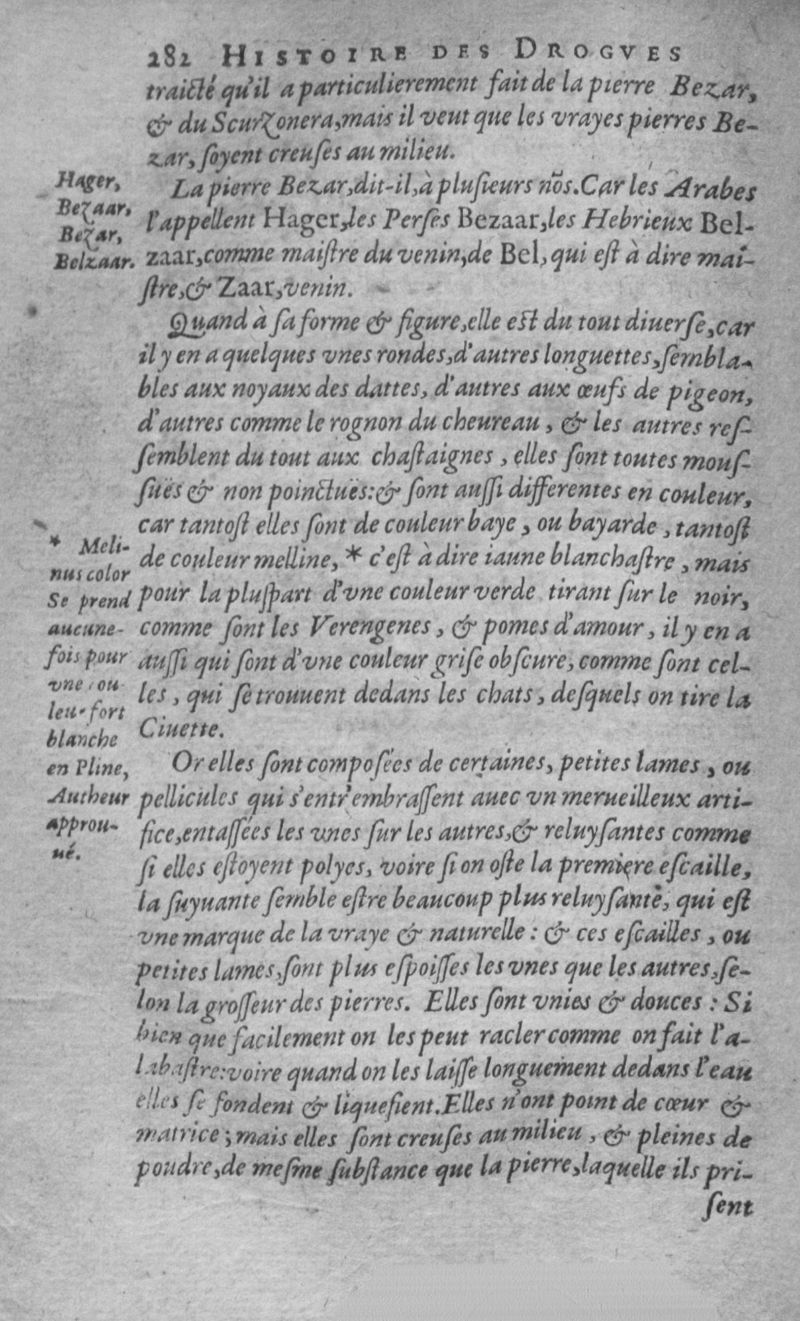 282 HISTOIRE DES DROGVES
traicté qu'il a particulierement fait de la pierre Bezar,
& du Scurzonera, mais il veut que les vrayes pierres Be-
zar, soyent creuses au milieu.
Hager,
Bezaar,
Bezar,
Belzaar.
La pierre Bezar, dit-il, à plusieurs nõs. Car les Arabes
l'appellent Hager, les Perses Bezaar, les Hebrieux Bel-
zaar, comme maistre du venin, de Bel, qui est à dire mai-
stre, & Zaar, venin.
Quand à sa forme & figure, elle est du tout diuerse, car
il y en a quelques vnes rondes, d'autres longuettes, sembla-
bles aux noyaux des dattes, d'autres aux œufs de pigeon,
d'autres comme le rognon du cheureau, & les autres res-
semblent du tout aux chastaignes, elles sont toutes mous-
sues & non poinctues: & sont aussi differentes en couleur,
car tantost elles sont de couleur baye, ou bayarde, tantost
de couleur melline, * c'est à dire iaune blanchastre, mais
pour la pluspart d'vne couleur verde tirant sur le noir,
comme sont les Verengenes, & pomes d'amour, il y en a
aussi qui sont d'vne couleur grise obscure, comme sont cel-
les, qui se trouuent dedans les chats, desquels on tire la
Ciuette.
* Meli-
nus color
Se prend
aucune-
fois pour
vne cou
leur fort
blanche
en Pline,
Autheur
approu-
ué.
Or elles sont composées de certaines, petites lames, ou
pellicules qui s'entr'embrassent auec vn merueilleux arti-
fice, entassées les vnes sur les autres, & reluysantes comme
si elles estoyent polyes, voire si on oste la premiere escaille,
la suyuante semble estre beaucoup plus reluysante, qui est
vne marque de la vraye & naturelle: & ces escailles, ou
petites lames, sont plus espoisses les vnes que les autres, se-
lon la grosseur des pierres. Elles sont vnies & douces: Si
bien que facilement on les peut racler comme on fait l'a-
labastre: voire quand on les laisse longuement dedans l'eau
elles se fondent & liquefient. Elles n'ont point de cœur &
matrice; mais elles sont creuses au milieu, & pleines de
poudre, de mesme substance que la pierre, laquelle ils pri-
sent